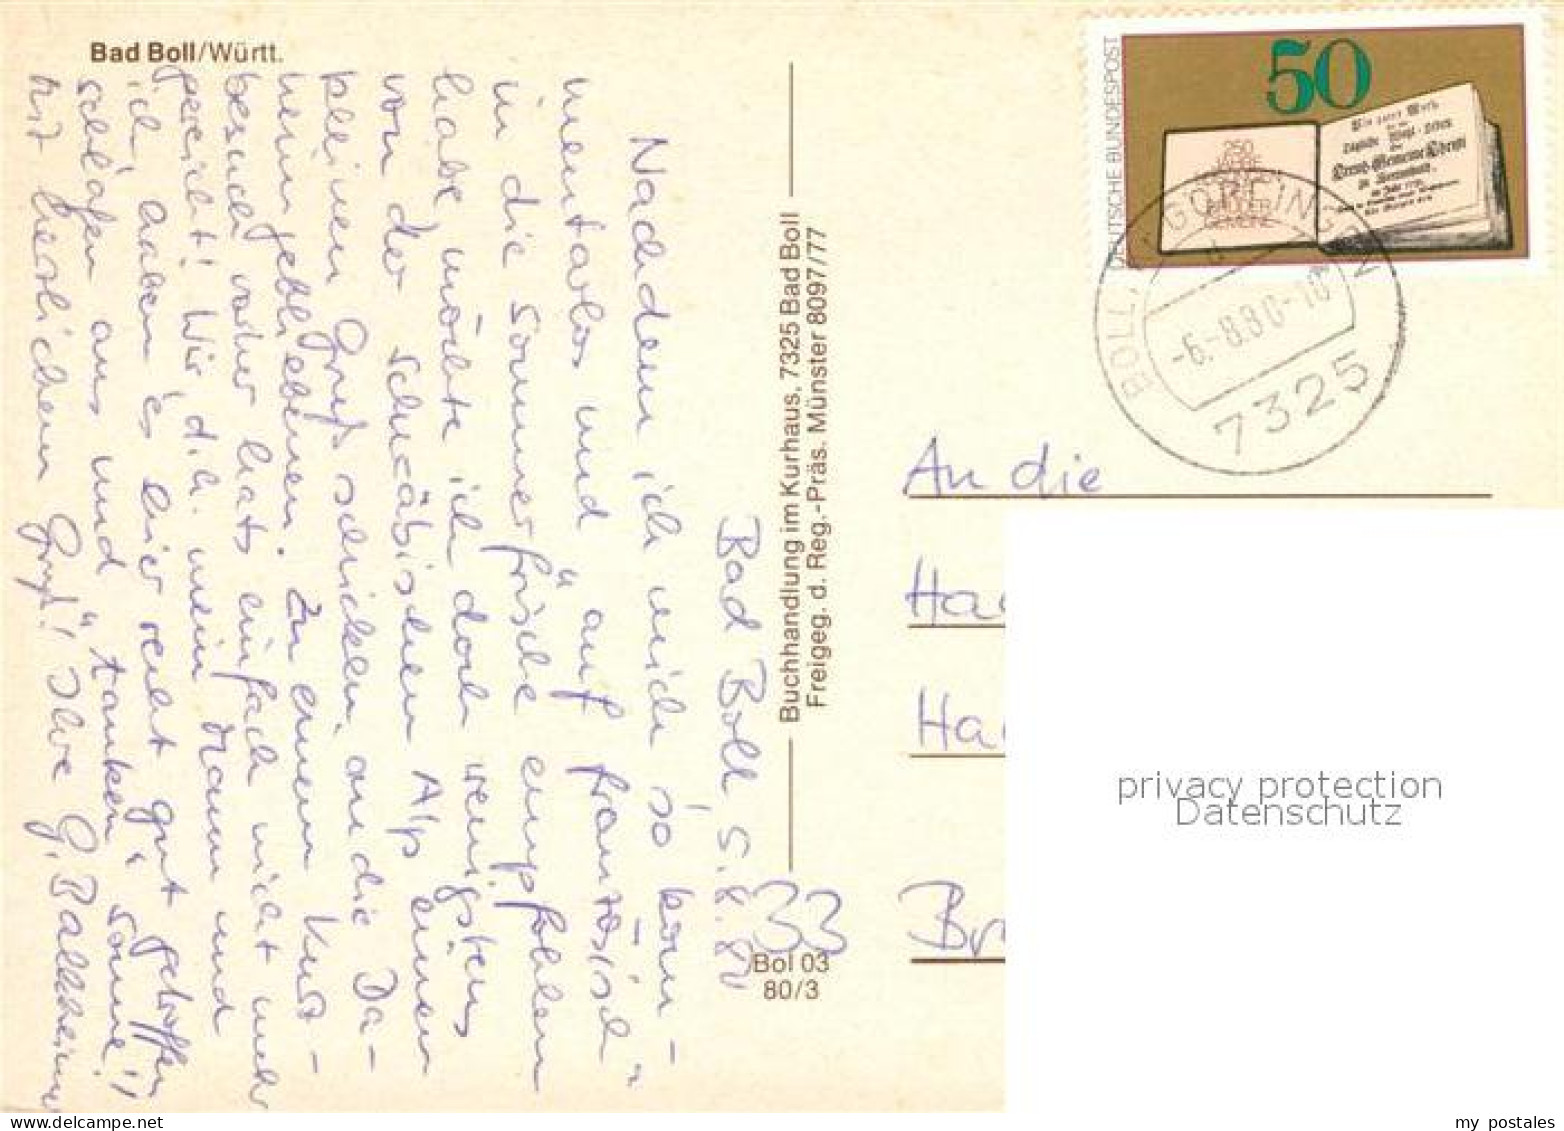 Bad Boll/Württ.
Bad Boll, 5.8.80
Nachdem ich mich so kom-
mentarlos und "auf französisch"
in die Sommerfrische empfohlen
habe, möchte ich doch wenigstens
von der Schwäbischen Alp einen
kleinen Gruß schicken an die Da-
heimgebliebenen. Zu einem Kurz-
besuch vorher hats einfach nicht mehr
gereicht! Wir, d.h. mein Mann und
ich, haben es hier recht gut getroffen,
schlafen aus und "tanken" Sonne!!
Mit herzlichem Gruß! Ihre G.
Buchhandlung im Kurhaus, 7325 Bad Boll
Freigeg. d. Reg.-Präs. Münster 8097/77
33
Bol 03
80/3
DEUTSCHE BUNDESPOST
50
250
JAHRE
BRÜDER
GEMEINE
Ein gutes Wort
BOLL
-6.-8.80-10
7325
An die
Ha
Ha
Br
privacy protection
Datenschutz
delcampe.net
my_postales